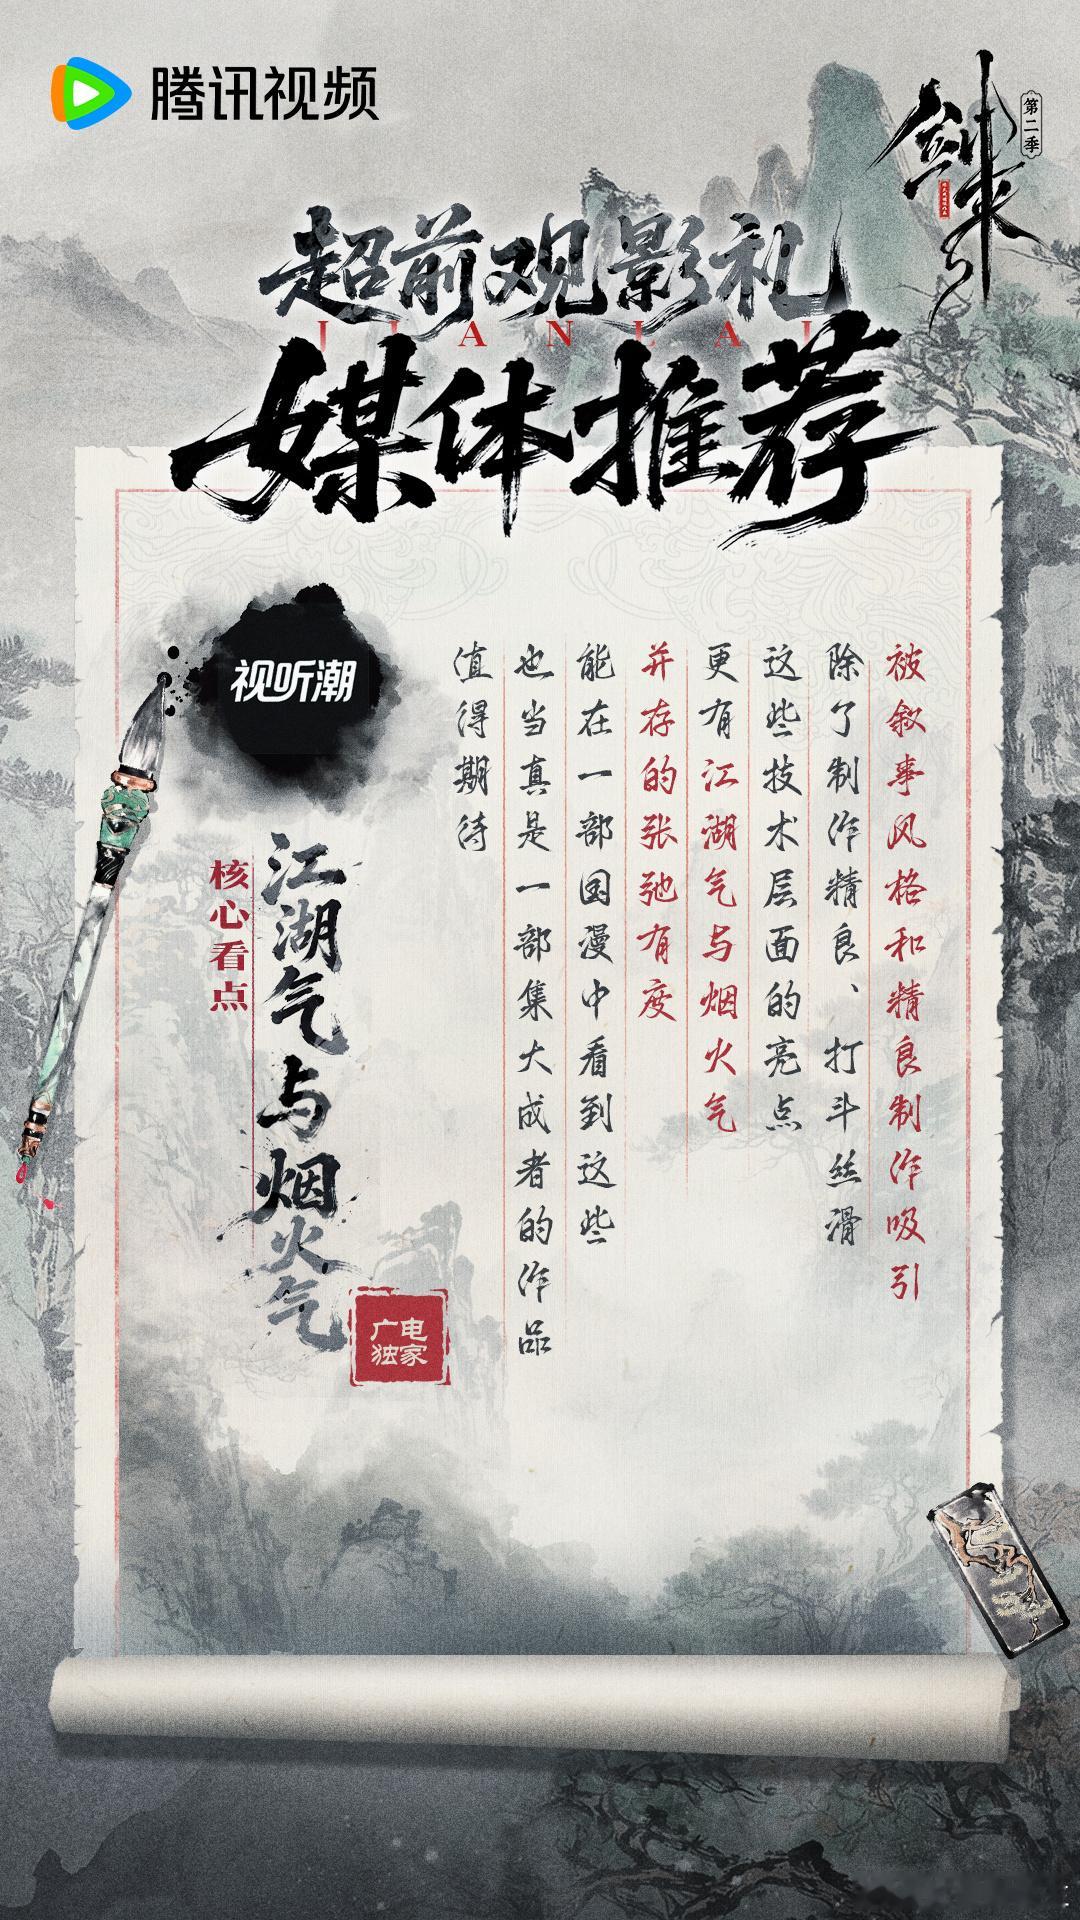 腾讯视频
剑来
第二季
超前观影礼
JIANLAI
媒体推荐
被叙事风格和精良制作吸引
除了制作精良、打斗丝滑
这些技术层面的亮点
更有江湖气与烟火气
并存的张弛有度
能在一部国漫中看到这些
也当真是一部集大成者的作品
值得期待
视听潮
核心看点
江湖气与烟火气
广电
独家